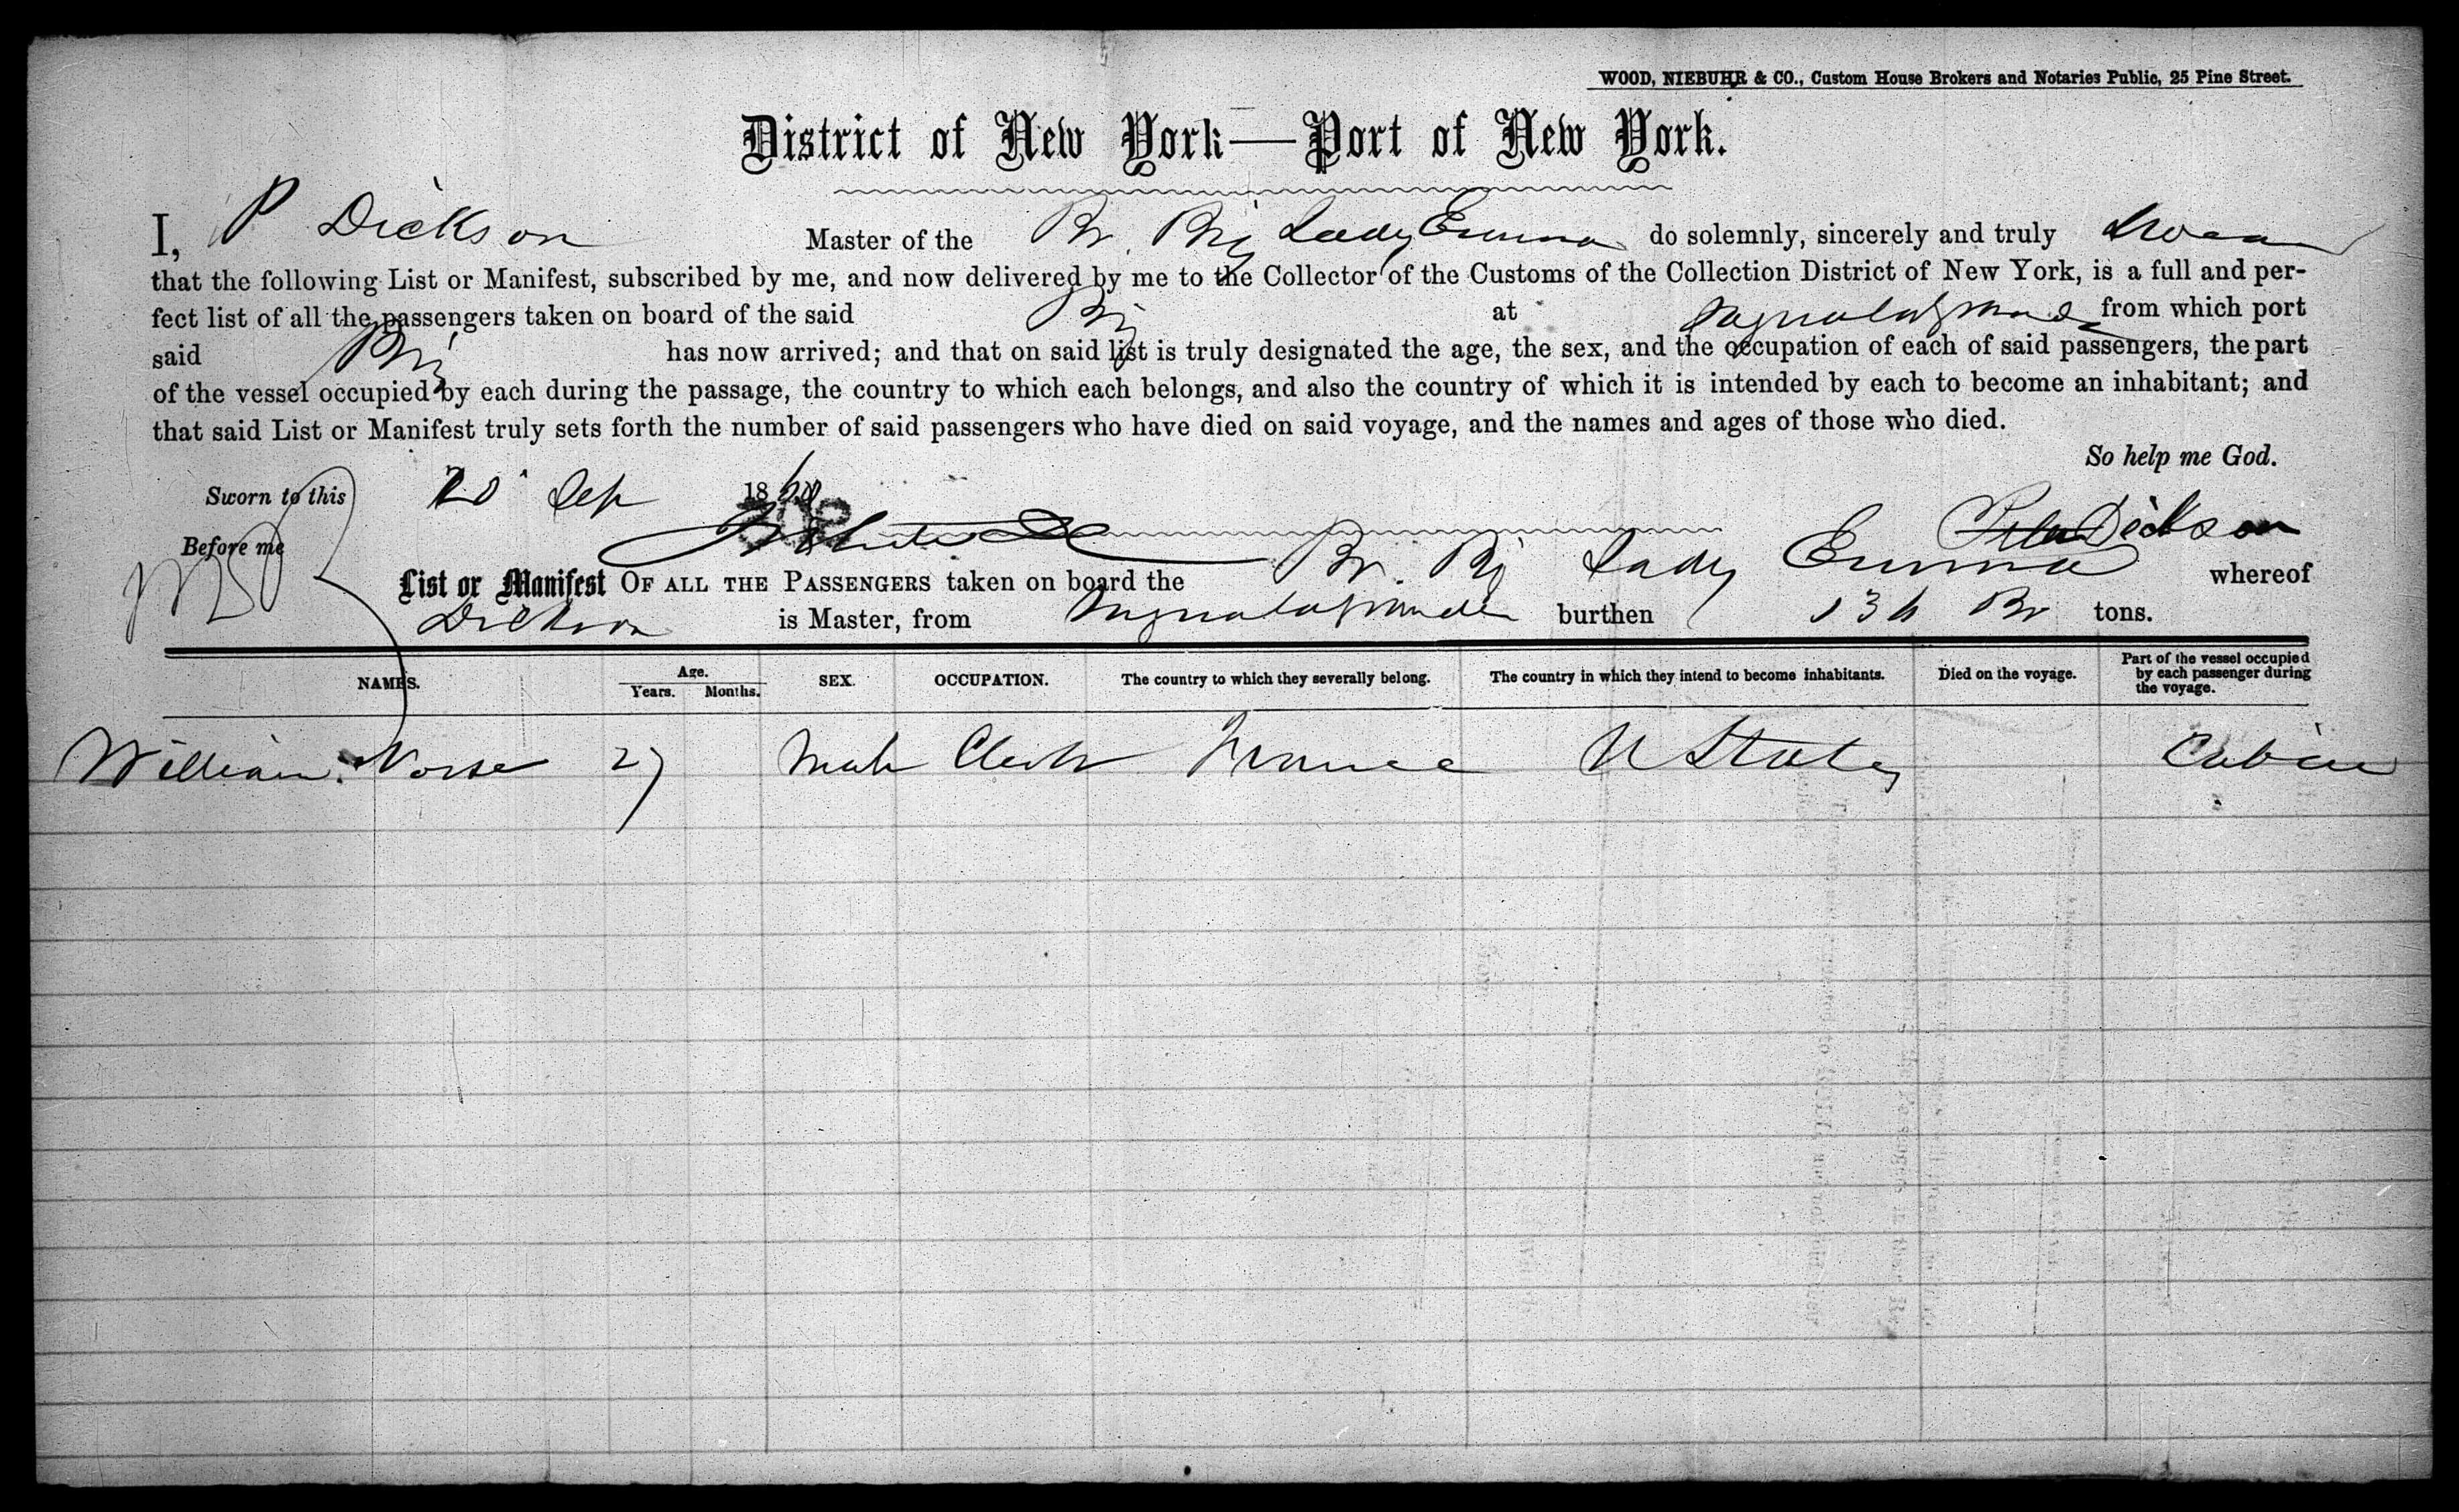 WOOD, NIEBUHR & CO., Custom House Brokers and Notaries Public, 25 Pine Street.
District of New York—Port of New York.
I, P Dickson Master of the Br. Brig Lady Emma do solemnly, sincerely and truly swear
that the following List or Manifest, subscribed by me, and now delivered by me to the Collector of the Customs of the Collection District of New York, is a full and per-
fect list of all the passengers taken on board of the said Brig at from which port
said Brig has now arrived; and that on said list is truly designated the age, the sex, and the occupation of each of said passengers, the part
of the vessel occupied by each during the passage, the country to which each belongs, and also the country of which it is intended by each to become an inhabitant; and
that said List or Manifest truly sets forth the number of said passengers who have died on said voyage, and the names and ages of those who died.
So help me God.
Sworn to this 20 Sep 1860
Before me Peter Dickson
List or Manifest OF ALL THE PASSENGERS taken on board the Br. Brig Lady Emma whereof
Dickson is Master, from burthen 136 Br tons.
NAMES. Age. Years. Months. SEX. OCCUPATION. The country to which they severally belong. The country in which they intend to become inhabitants. Died on the voyage. Part of the vessel occupied by each passenger during the voyage.
William 27 Male Clerk France U States Cabin